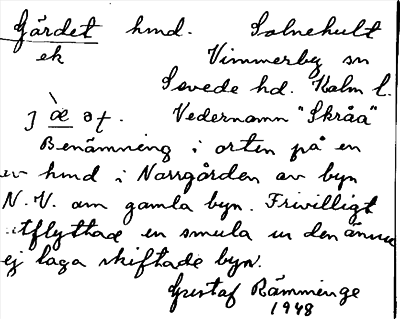 Gärdet hmd. Solnehult
ek Vimmerby sn
Sevede hd. Kalm l.
Vedernamn "Skråa"
Benämning i orten på en
ev hmd i Norrgården av byn
N.V. om gamla byn. Frivilligt
utflyttad en smula ur den ännu
ej laga skiftade byn.
Gustaf Rämminge
1948